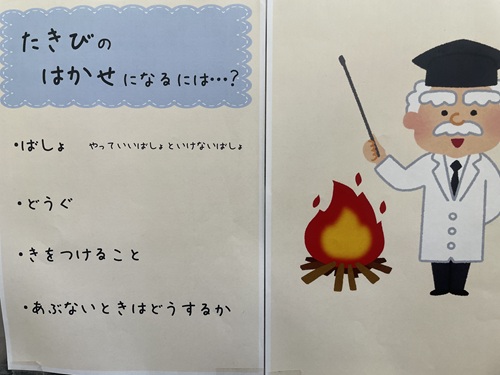 たきびの
はかせになるには…?
・ばしょ　やっていいばしょといけないばしょ
・どうぐ
・きをつけること
・あぶないときはどうするか